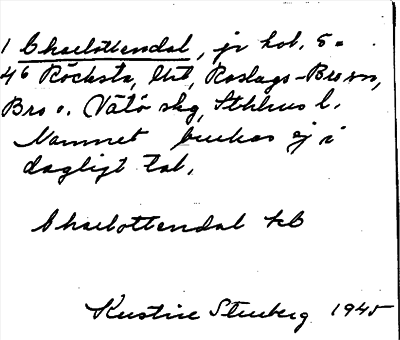 1 Charlottendal, jr hol. 5 a
4⁶ Röcksta, Utl, Roslags-Bro sn,
Bro o. Vätö skg, Sthlms l.
Namnet brukas ej i
dagligt tal.
Charlottendal kb
Kerstin Stenberg 1945